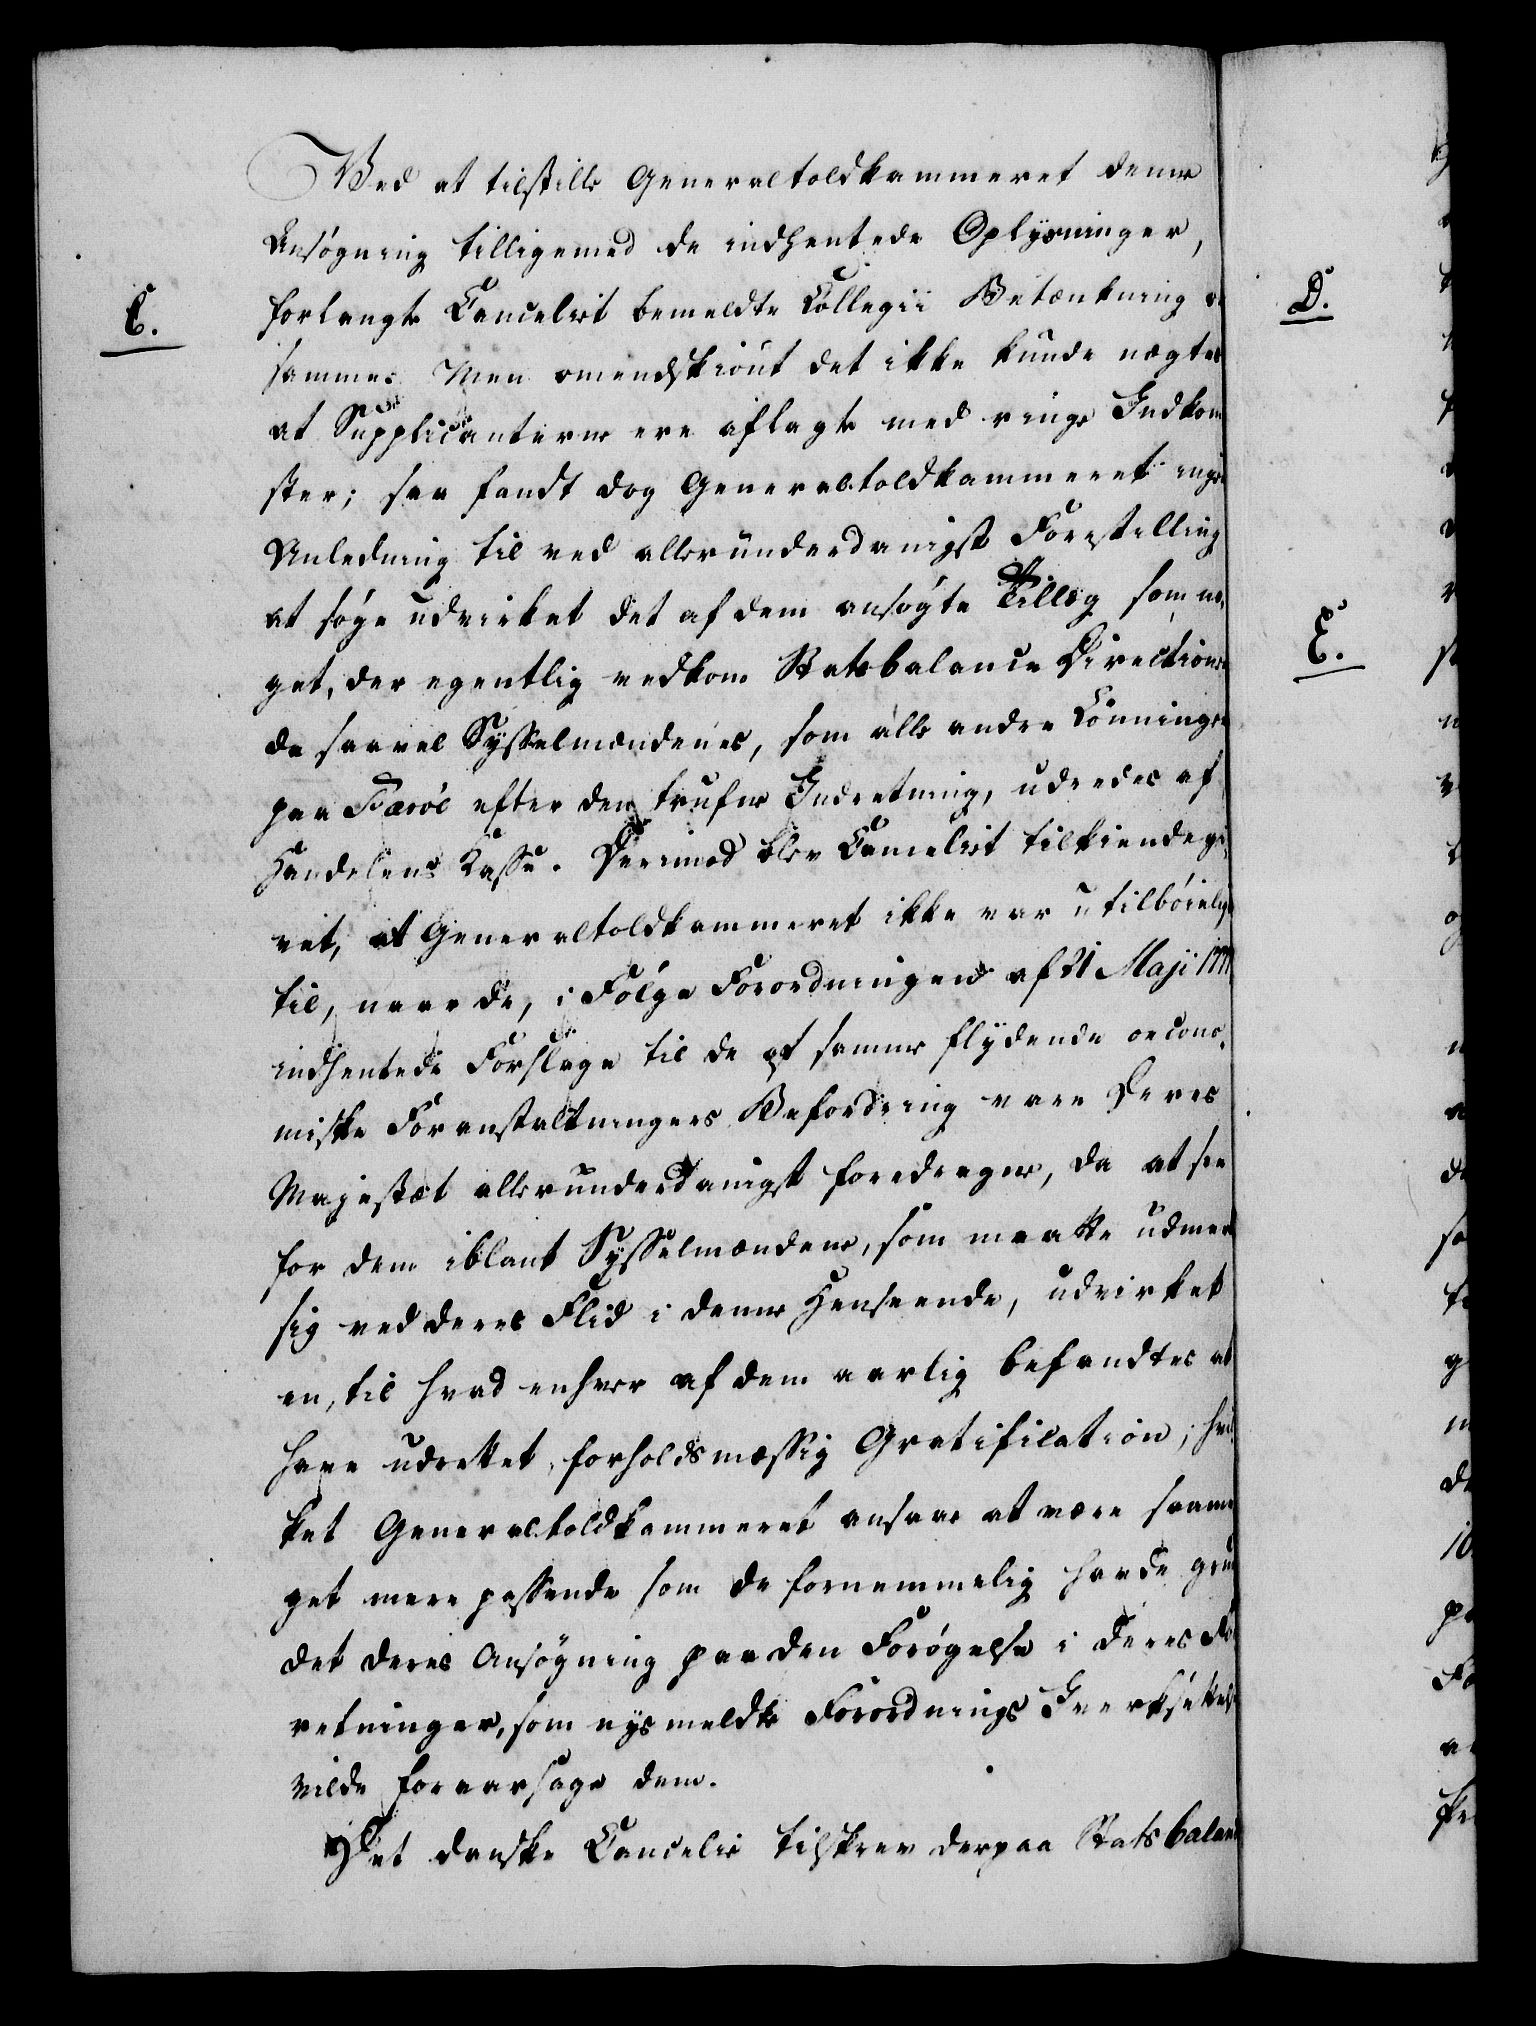 Ved at tilstille Generaltoldkammeret denne
Ansøgning tilligemed de indhentede Oplysninger,
C.
forlangte Cancelliet bemeldte Collegii Betænkning
samme. Men omendskiønt det ikke kunde nægtes
at Supplicanterne ere aflagte med ringe Indkom
ster; saa fandt dog Generaltoldkammeret ingen
Anledning til ved allerunderdanigst Forestilling
at søge udvirket det af dem ansøgte Tillæg som no,
get, der egentlig vedkom Statsbalance Directionen
da saavel Sysselmændenes, som alle andre Lønninger
paa Færøe efter den trufne Indretning, udredes af
Handelens Kasse. Derimod blev Cancelliet tilkiendegi,
vet, at Generaltoldkammeret ikke var utilbøielig
til, naar de, i Følge Forordningen af 21 Maji 1777
indhentede Forslage til de af samme flydende oecono,
miske Foranstaltningers Befordring vare Deres
Majestæt allerunderdanigst foredragne, da at see
for dem iblant Sysselmændene, som maatte udmerke
sig ved deres Flid i denne Henseende, udvirket
en, til hvad enhver af dem aarlig befandtes at
have udrettet, forholdsmæssig Gratification, hvil
ket Generaltoldkammeret ansaae at være saame
get mere passende som de fornemmelig havde grun
det deres Ansøgning paa den Forøgelse i deres For
retninger, som nysmeldte Forordnings Iverksættelse
vilde foraarsage dem.
Det danske Cancelie tilskrev derpaa Statsbalance
D.
E.